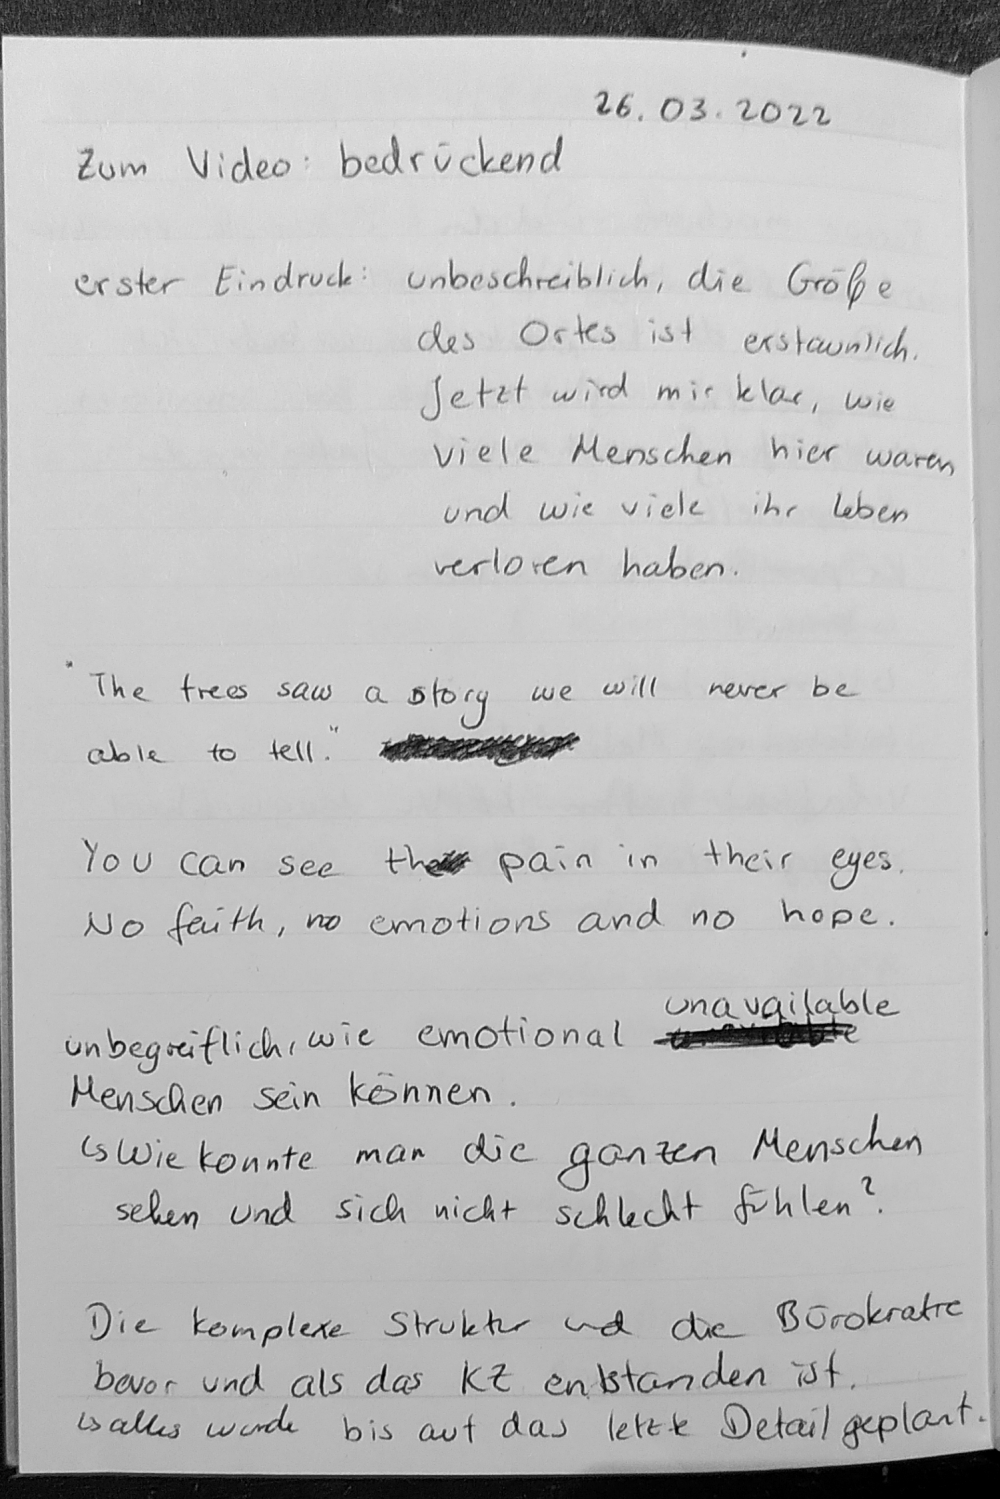 26.03.2022
Zum Video: bedrückend
erster Eindruck: unbeschreiblich, die Größe
des Ortes ist erstaunlich.
Jetzt wird mir klar, wie
viele Menschen hier waren
und wie viele ihr leben
verloren haben.
"The trees saw a story we will never be
able to tell."
You can see the pain in their eyes.
No faith, no emotions and no hope.
unavailable
unbegreiflich, wie emotional
Menschen sein können.
↳ Wie konnte man die ganzen Menschen
sehen und sich nicht schlecht fühlen?
Die komplexe Struktur und die Bürokratie
bevor und als das KZ entstanden ist.
↳ alles wurde bis auf das letzte Detail geplant.